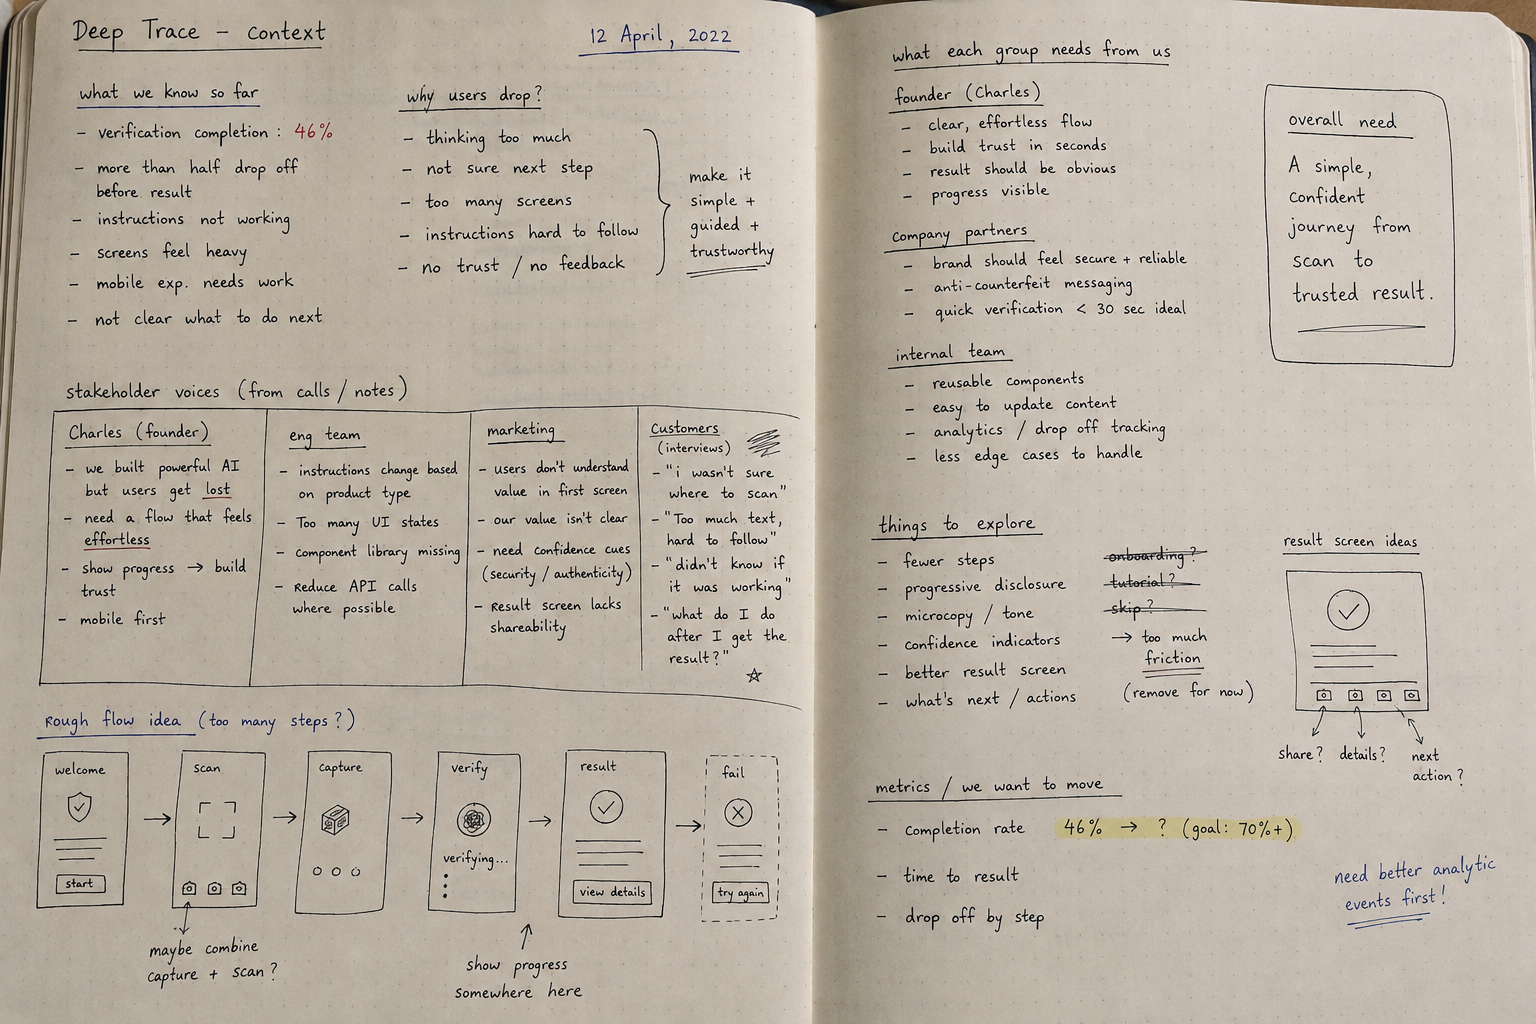 Deep Trace – context
12 April, 2022
what we know so far
– verification completion : 46%
– more than half drop off
before result
– instructions not working
– screens feel heavy
– mobile exp. needs work
– not clear what to do next
why users drop?
– thinking too much
– not sure next step
– too many screens
– instructions hard to follow
– no trust / no feedback
make it
simple +
guided +
trustworthy
Stakeholder voices (from calls / notes)
Charles (founder)
– we built powerful AI
but users get lost
– need a flow that feels
effortless
– show progress → build
trust
– mobile first
eng team
– instructions change based
on product type
– Too many UI states
– component library missing
– Reduce API calls
where possible
marketing
– users don't understand
value in first screen
– our value isn't clear
– need confidence cues
(security / authenticity)
– Result screen lacks
shareability
Customers
(interviews)
– "i wasn't sure
where to scan"
– "Too much text,
hard to follow"
– "didn't know if
it was working"
– "what do I do
after I get the
result?"
Rough flow idea (too many steps?)
welcome
start
scan
capture
verify
verifying...
result
view details
fail
try again
maybe combine
capture + scan?
show progress
somewhere here
what each group needs from us
founder (Charles)
– clear, effortless flow
– build trust in seconds
– result should be obvious
– progress visible
company partners
– brand should feel secure + reliable
– anti-counterfeit messaging
– quick verification < 30 sec ideal
internal team
– reusable components
– easy to update content
– analytics / drop off tracking
– less edge cases to handle
overall need
A simple,
confident
journey from
scan to
trusted result.
things to explore
– fewer steps
– progressive disclosure
– microcopy / tone
– confidence indicators
– better result screen
– what's next / actions
onboarding?
tutorial?
skip?
→ too much
friction
(remove for now)
result screen ideas
share?
details?
next
action?
metrics / we want to move
– completion rate 46% → ? (goal: 70%+)
– time to result
– drop off by step
need better analytic
events first!